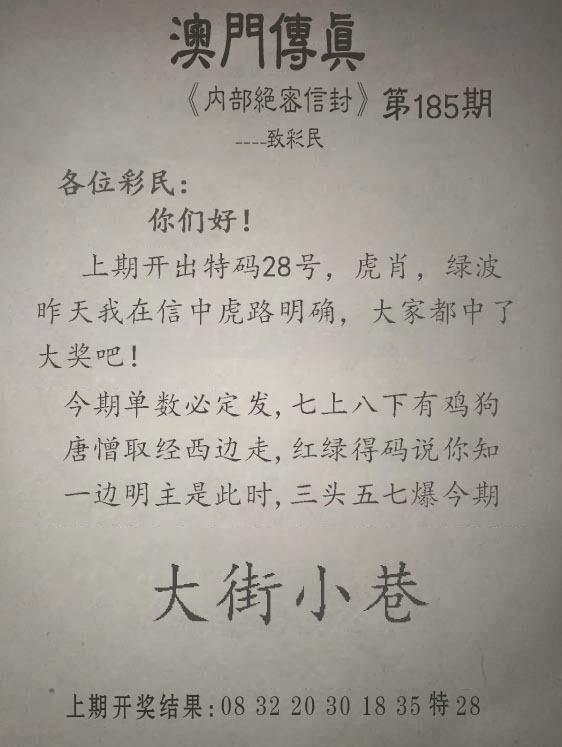 澳門傳眞
《内部絕密信封》第185期
----致彩民
各位彩民：
你们好！
上期开出特码28号，虎肖，绿波
昨天我在信中虎路明确，大家都中了
大奖吧！
今期单数必定发,七上八下有鸡狗
唐憎取经西边走,红绿得码说你知
一边明主是此时,三头五七爆今期
大街小巷
上期开奖结果:08 32 20 30 18 35 特 28